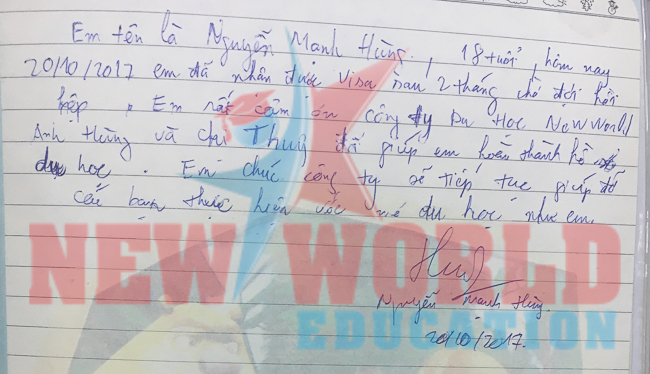 Em tên là Nguyễn Mạnh Hùng, 18 tuổi, hôm nay
20/10/2017 em đã nhận được Visa sau 2 tháng chờ đợi hồi
hộp. Em rất cảm ơn công ty Du Học NewWorld
Anh Hùng và chị Thuỷ đã giúp em hoàn thành hồ sơ
du học. Em chúc công ty sẽ tiếp tục giúp đỡ
các bạn thực hiện ước mơ du học như em.
NEW WORLD
EDUCATION
Nguyễn Mạnh Hùng.
20/10/2017.